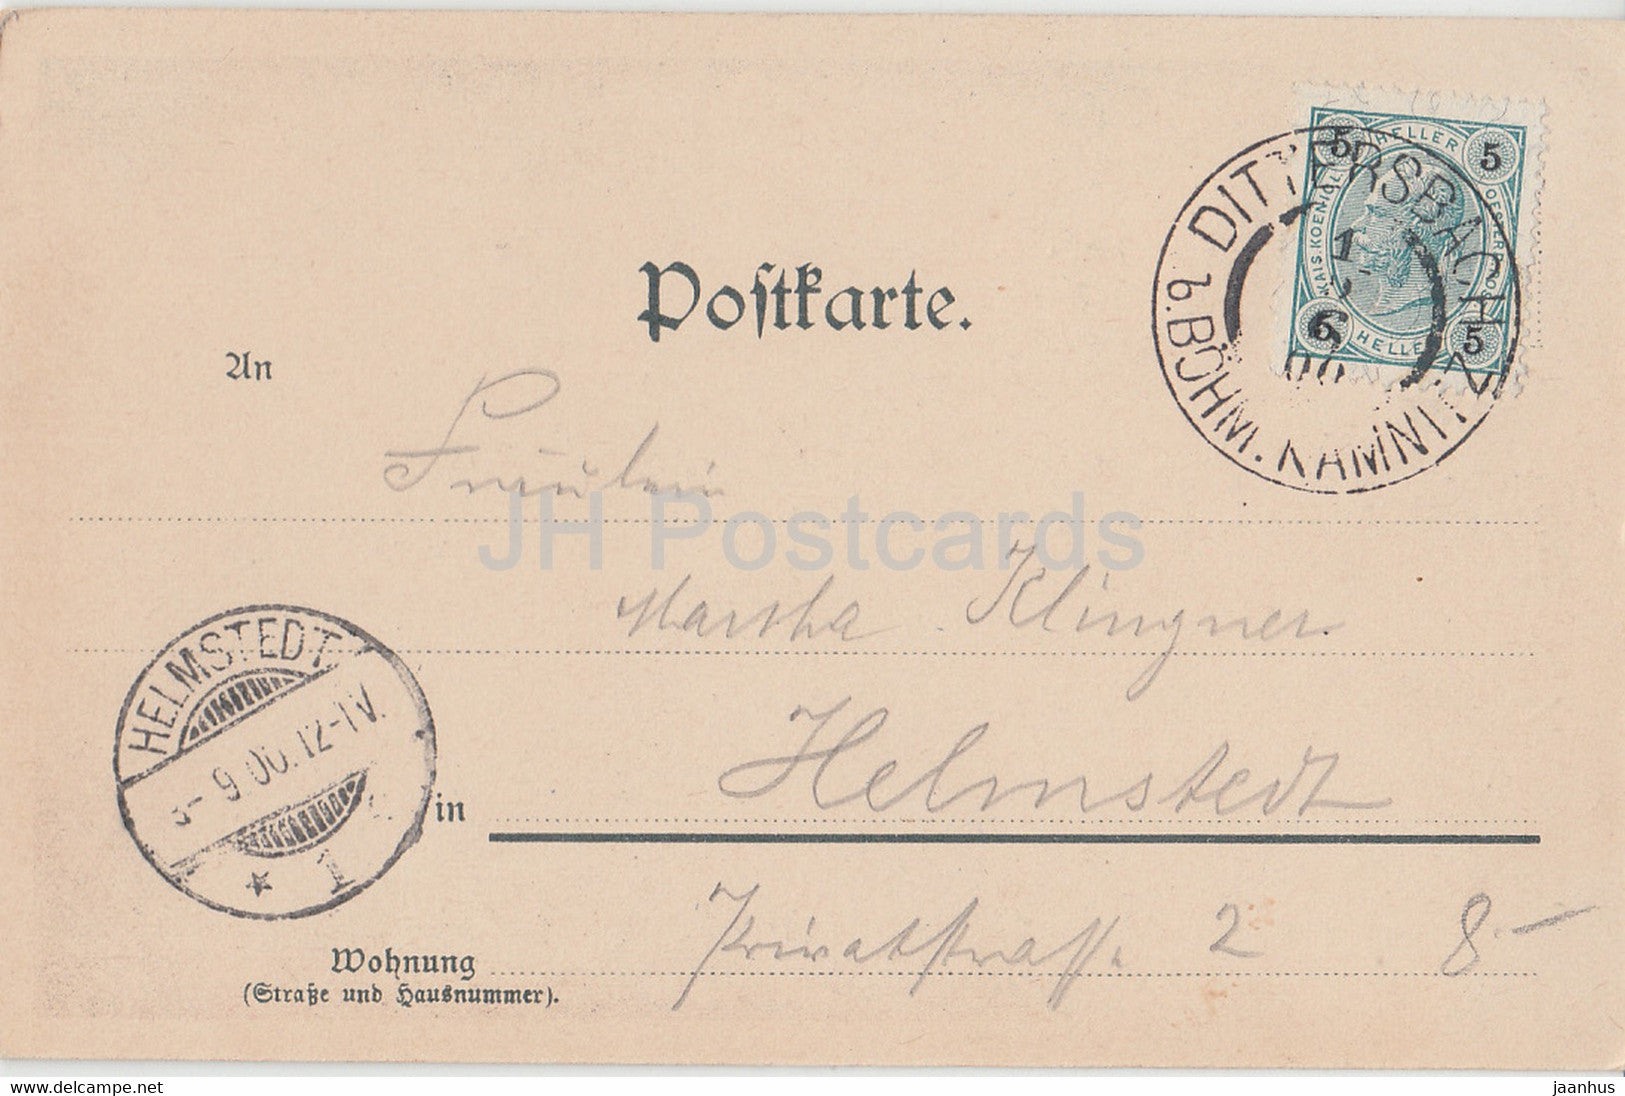 5 HELLER 5
KAIS. KOENIGL.
5
HELLER
DITTERSBACH
b. BÖHM. KAMNITZ
1
6
00
Postkarte.
An
Fräulein
JH Postcards
Martha Klingner
HELMSTEDT
3-9.00.12-1V.
* 1
in
Helmstedt
Privatstrasse 2
8-
Wohnung
(Straße und Hausnummer).
www.delcampe.net
jaanhus